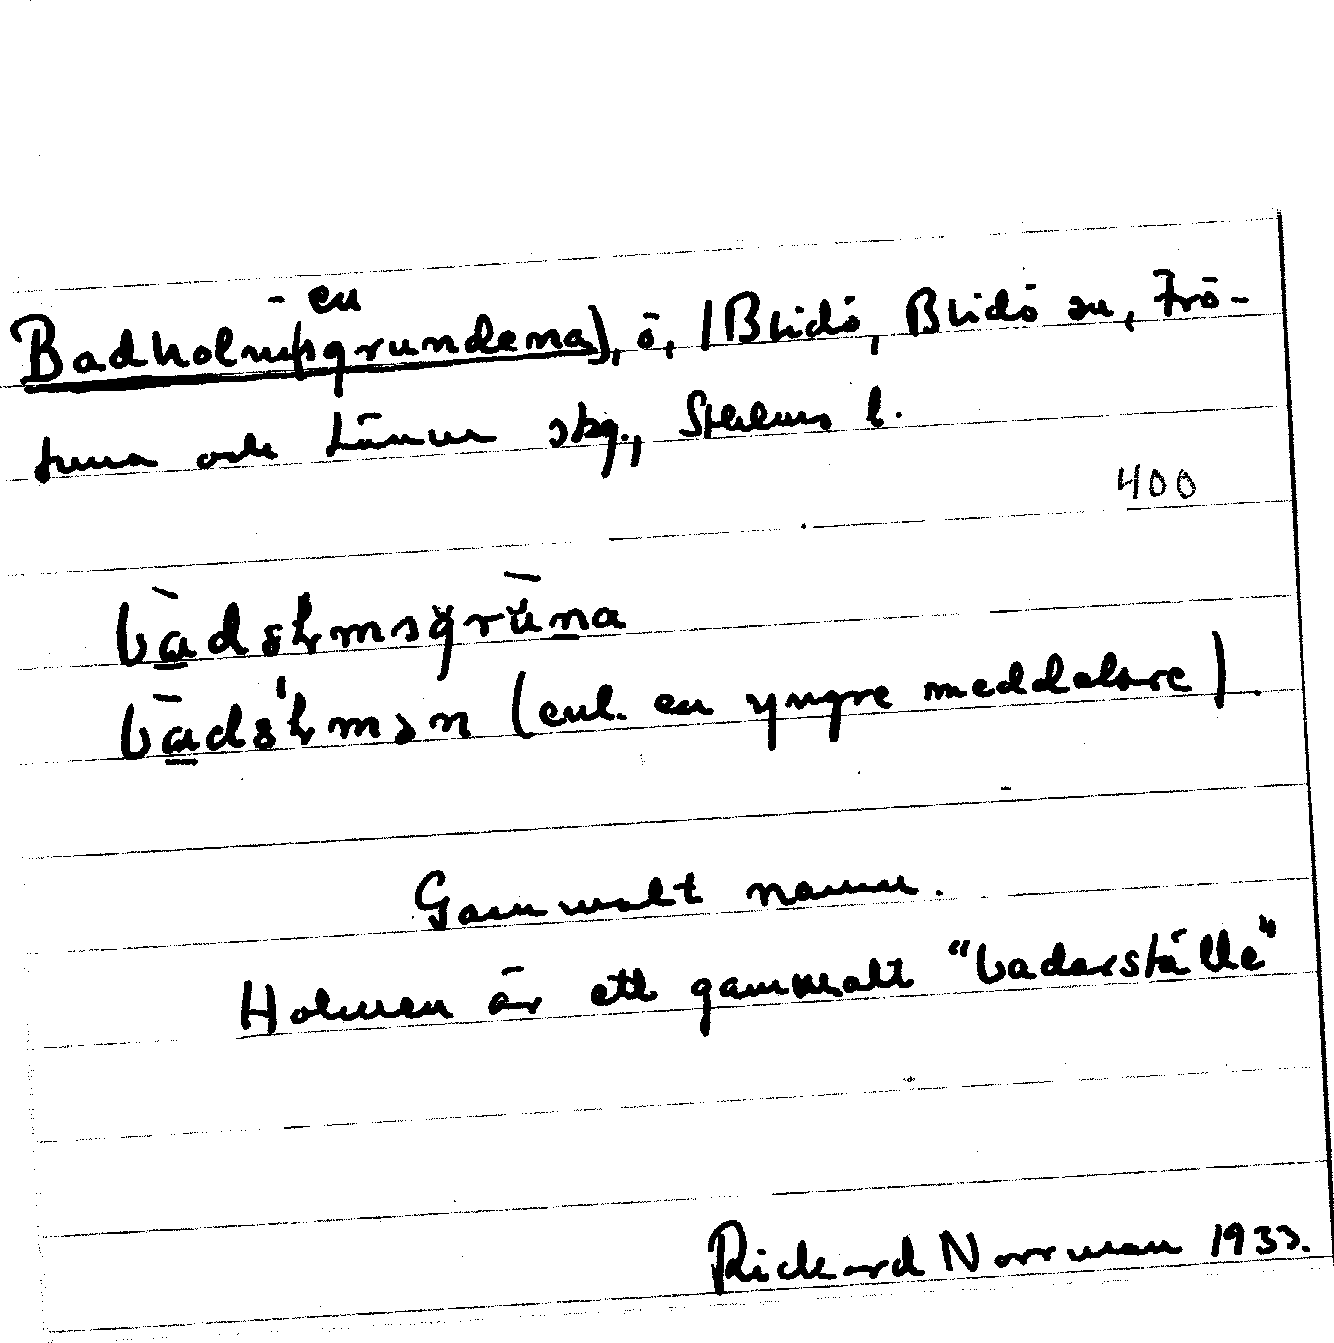 -en
Badholm(sgrundena), ö, /Blidö, Blidö sn, Frö-
tuna och Länna skg., Sthlms l.
400
bàdəɫmsgrùna
bàdəɫmən (enl. en yngre meddelare).
Gammalt namn.
Holmen är ett gammalt "badarställe"
Rickard Norrman 1933.